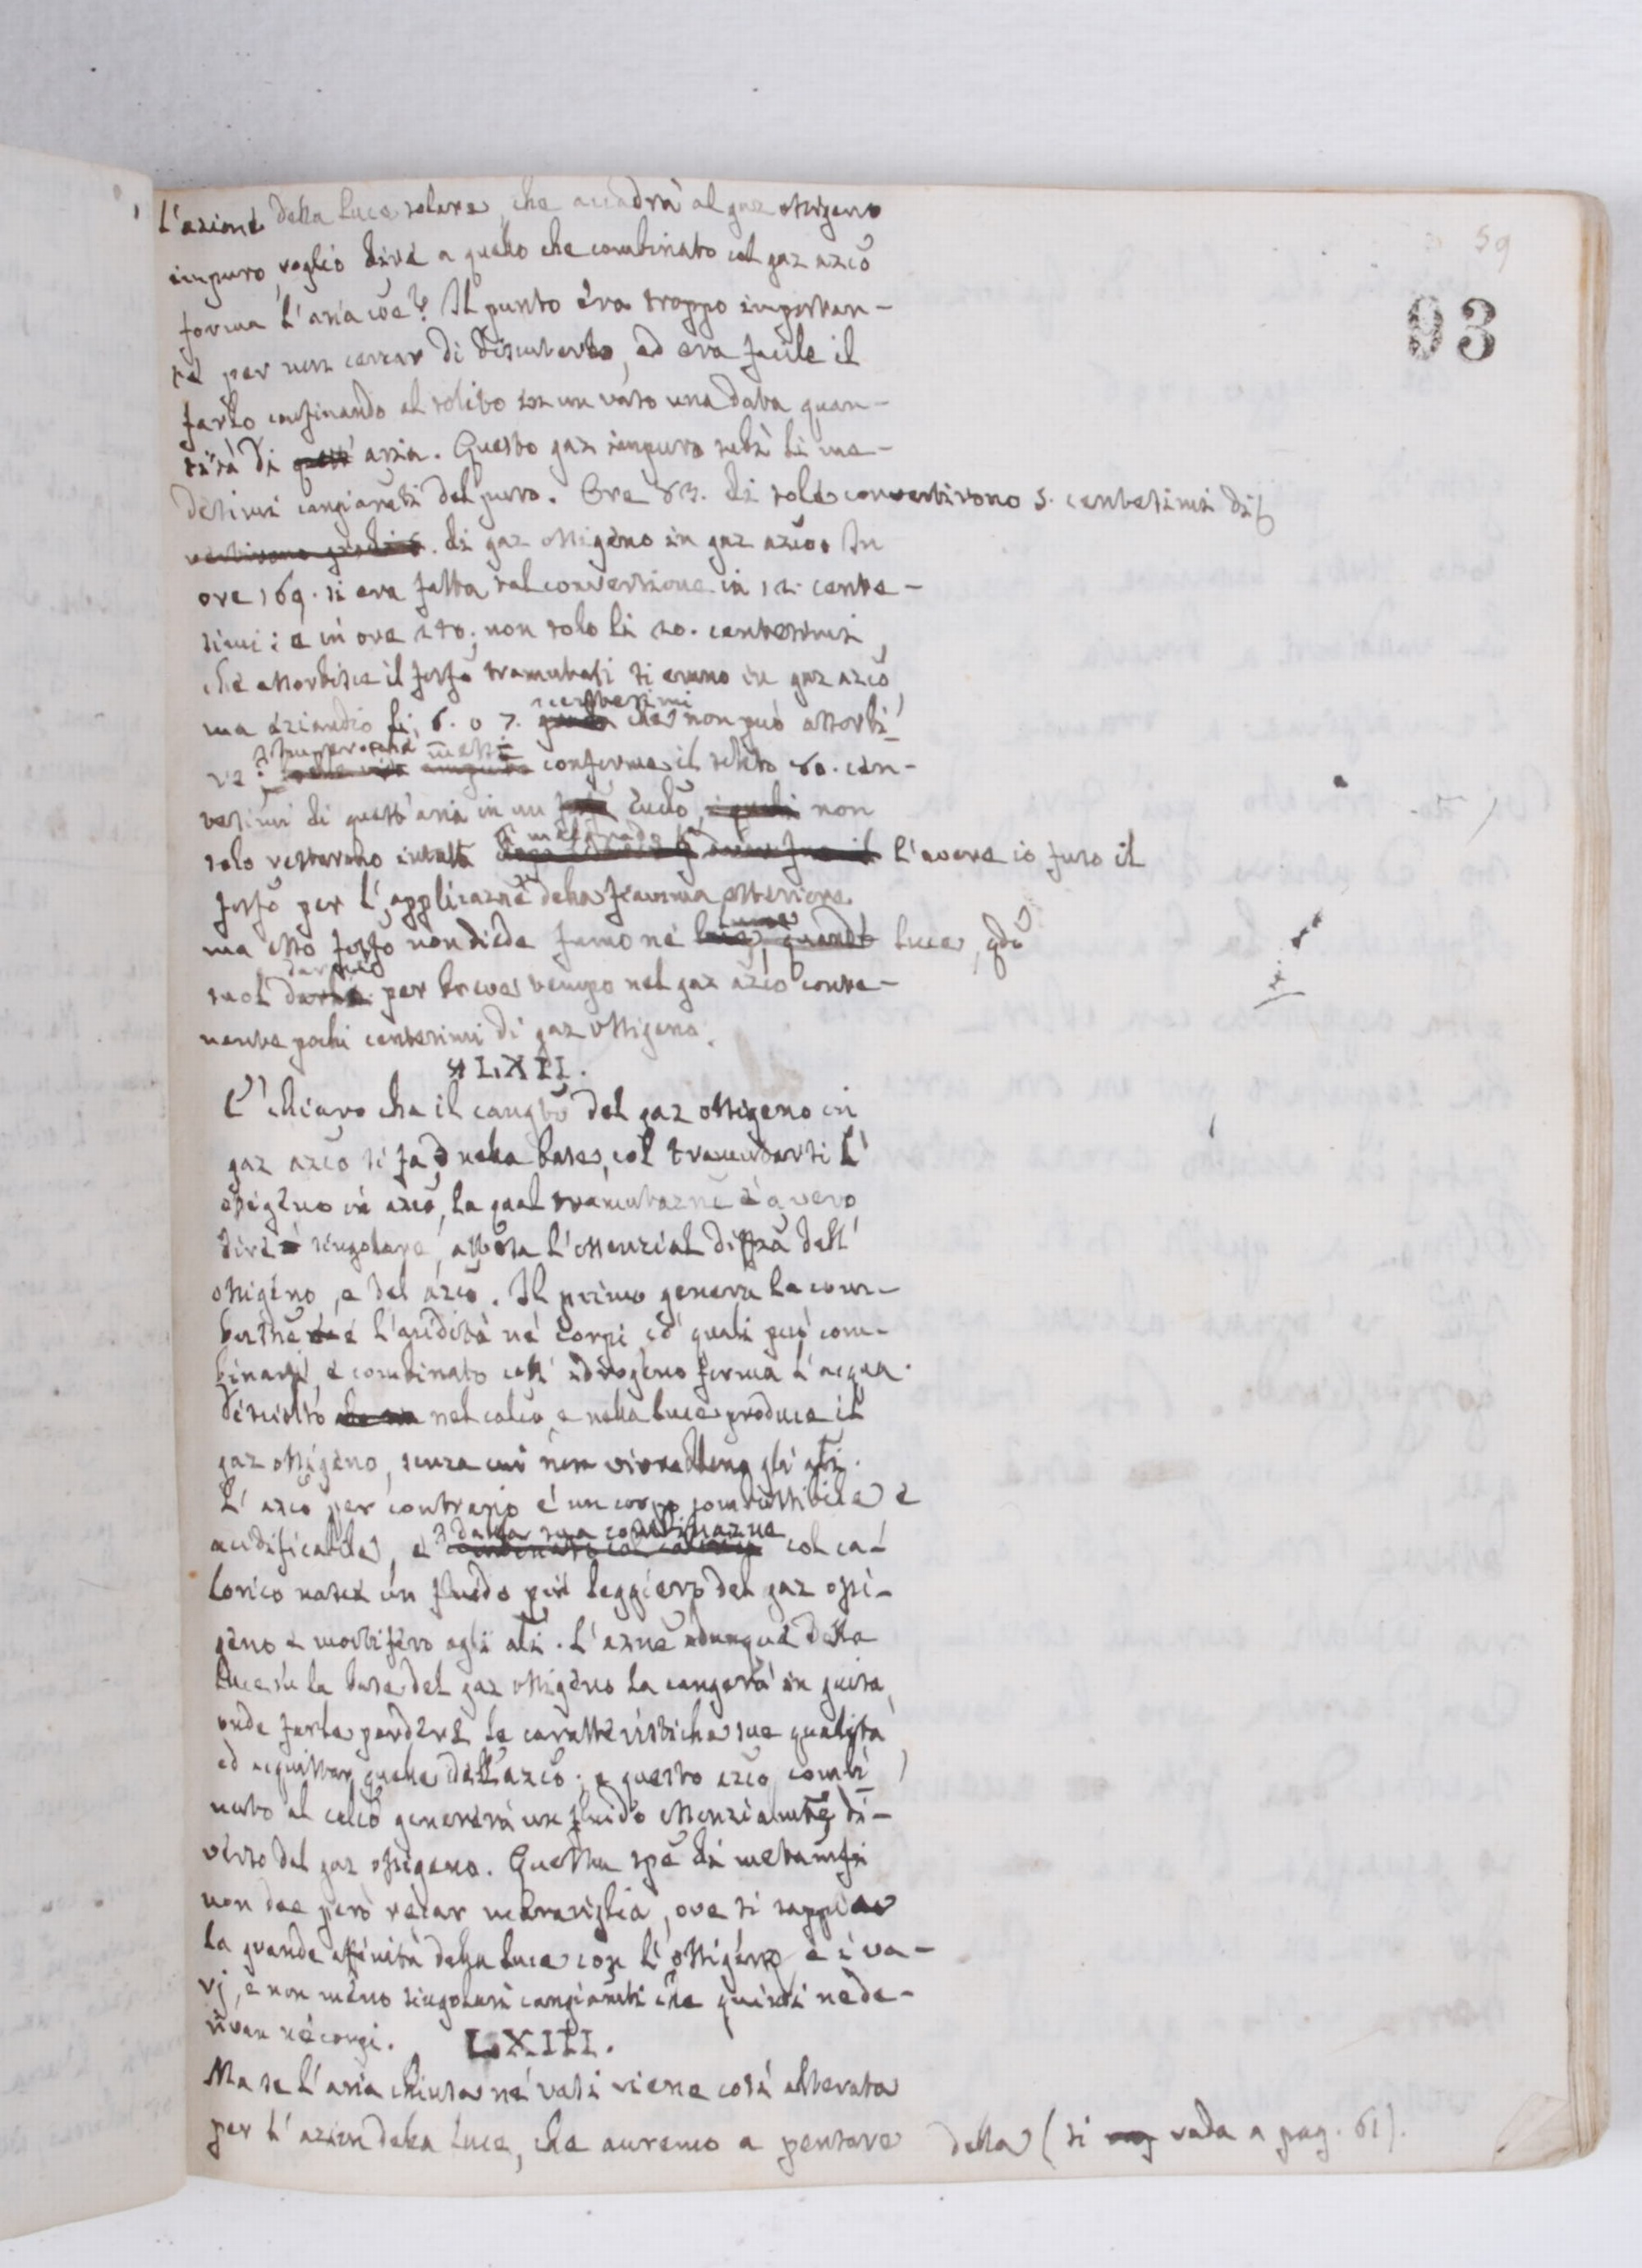 59
93
L'azione della luce solare, che accadrà al gaz ossigeno
impuro, voglio dire a quello che combinato col gaz azoo
forma l'aria coe? Il punto era troppo importan-
te per non cercar di discuterlo, ed era facile il
farlo confinando al solito in un vaso una data quan-
tità di quest' aria. Questo gaz impuro subì li me-
desimi cangiamti del puro. Ore 83. di sole convertirono 5. centesimi di
vertirono gradi 5. di gaz ossigeno in gaz azoo. In
ore 169. si era fatta tal conversione in 12. cente-
simi: e in ore 240; non solo li 20. centesimi,
che assorbisce il fosfo tramutati si erano in gaz azoo,
centesimi
ma eziandio li 6. o 7. che non può assorbi-
re: conforme il solito 60. cen-
tesimi di quest'aria in un tubo, i quali non
solo restarono intatti malgrado l'avere io fuso il
fosfo per l'applicazne della fiamma esteriore.
ma esso fosfo non diede fumo né luce, qdo
suol dar per breve tempo nel gaz azoo conte-
nente pochi centesimi di gaz ossigeno.
LXII.
E' chiaro che il cangto del gaz ossigeno in
gaz azoo si fa nella base, col tramutarsi l'
ossigeno in azoo, la qual tramutazne è a vero
dire singolare, attesa l'essenzial diffza dell'
ossigeno, e del azoo. Il primo genera la com-
bustne e l'acidità ne' corpi, co' quali può com-
binarsi, e combinato coll' idrogeno forma l'acqua.
Disciolto nel calco, e nella luce produce il
gaz ossigeno, senza cui non vivrebbono gli ali.
L' azoo per contrario è un corpo combustibile e
acidificabile, e dalla sua combinazne col ca-
lorico nasce un fluido più leggiero del gaz ossi-
geno e mortifero agli ali. L'azne adunque della
luce su la base del gaz ossigeno la cangerà in guisa,
onde farle perdere le caratteristiche sue qualità
ed acquistar quelle dell'azoo; e questo azoo combi-
nato al calco genererà un fluido essenzialmte di-
verso dal gaz ossigeno. Questa spe di metamfsi
non dee però recar meraviglia, ove si sappia
la grande affinità della luce con l'ossigeno e i va-
rj, e non meno singolari cangiamti che quindi ne de-
rivan ne' corpi. LXIII.
Ma se l'aria chiusa ne' vasi viene così alterata
per l' azion della luce, che avremo a pensare della (si vada a pag. 61).